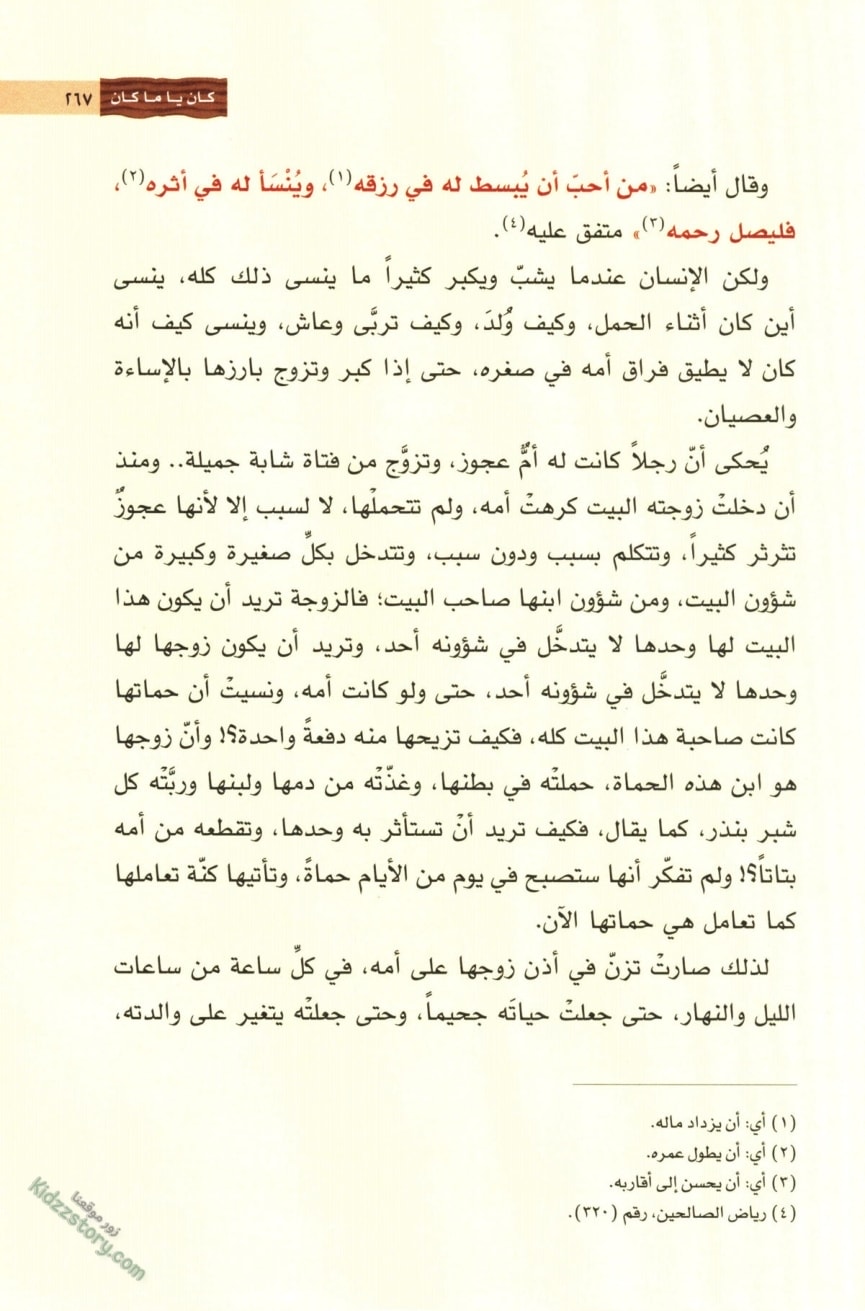 كان يا ما كان ٢٦٧
وقال أيضاً: «من أحبّ أن يُبسط له في رزقه(١)، ويُنْسَأ له في أثره(٢)،
فليصل رحمه(٣)» متفق عليه(٤).
ولكن الإنسان عندما يشبّ ويكبر كثيراً ما ينسى ذلك كله، ينسى
أين كان أثناء الحمل، وكيف وُلدَ، وكيف تربَّى وعاش، وينسى كيف أنه
كان لا يطيق فراق أمه في صغره، حتى إذا كبر وتزوج بارزها بالإساءة
والعصيان.
يُحكى أنّ رجلاً كانت له أمٌّ عجوز، وتزوَّج من فتاة شابة جميلة.. ومنذ
أن دخلتْ زوجته البيت كرهتْ أمه، ولم تتحملْها، لا لسبب إلا لأنها عجوزٌ
تثرثر كثيراً، وتتكلم بسبب ودون سبب، وتتدخل بكلِّ صغيرة وكبيرة من
شؤون البيت، ومن شؤون ابنها صاحب البيت؛ فالزوجة تريد أن يكون هذا
البيت لها وحدها لا يتدخَّل في شؤونه أحد، وتريد أن يكون زوجها لها
وحدها لا يتدخَّل في شؤونه أحد، حتى ولو كانت أمه، ونسيتْ أن حماتها
كانت صاحبة هذا البيت كله، فكيف تزيحها منه دفعةً واحدة؟! وأنّ زوجها
هو ابن هذه الحماة، حملتْه في بطنها، وغذّتْه من دمها ولبنها وربَّتْه كل
شبر بنذر، كما يقال، فكيف تريد أنْ تستأثر به وحدها، وتقطعه من أمه
بتاتاً؟! ولم تفكّر أنها ستصبح في يوم من الأيام حماةً، وتأتيها كنّة تعاملها
كما تعامل هي حماتها الآن.
لذلك صارتْ تزنّ في أذن زوجها على أمه، في كلِّ ساعة من ساعات
الليل والنهار، حتى جعلتْ حياتَه جحيماً، وحتى جعلتْه يتغير على والدته،
(١) أي: أن يزداد ماله.
(٢) أي: أن يطول عمره.
(٣) أي: أن يحسن إلى أقاربه.
(٤) رياض الصالحين، رقم (٣٢٠).
زور موقعنا
Kidzzstory.com